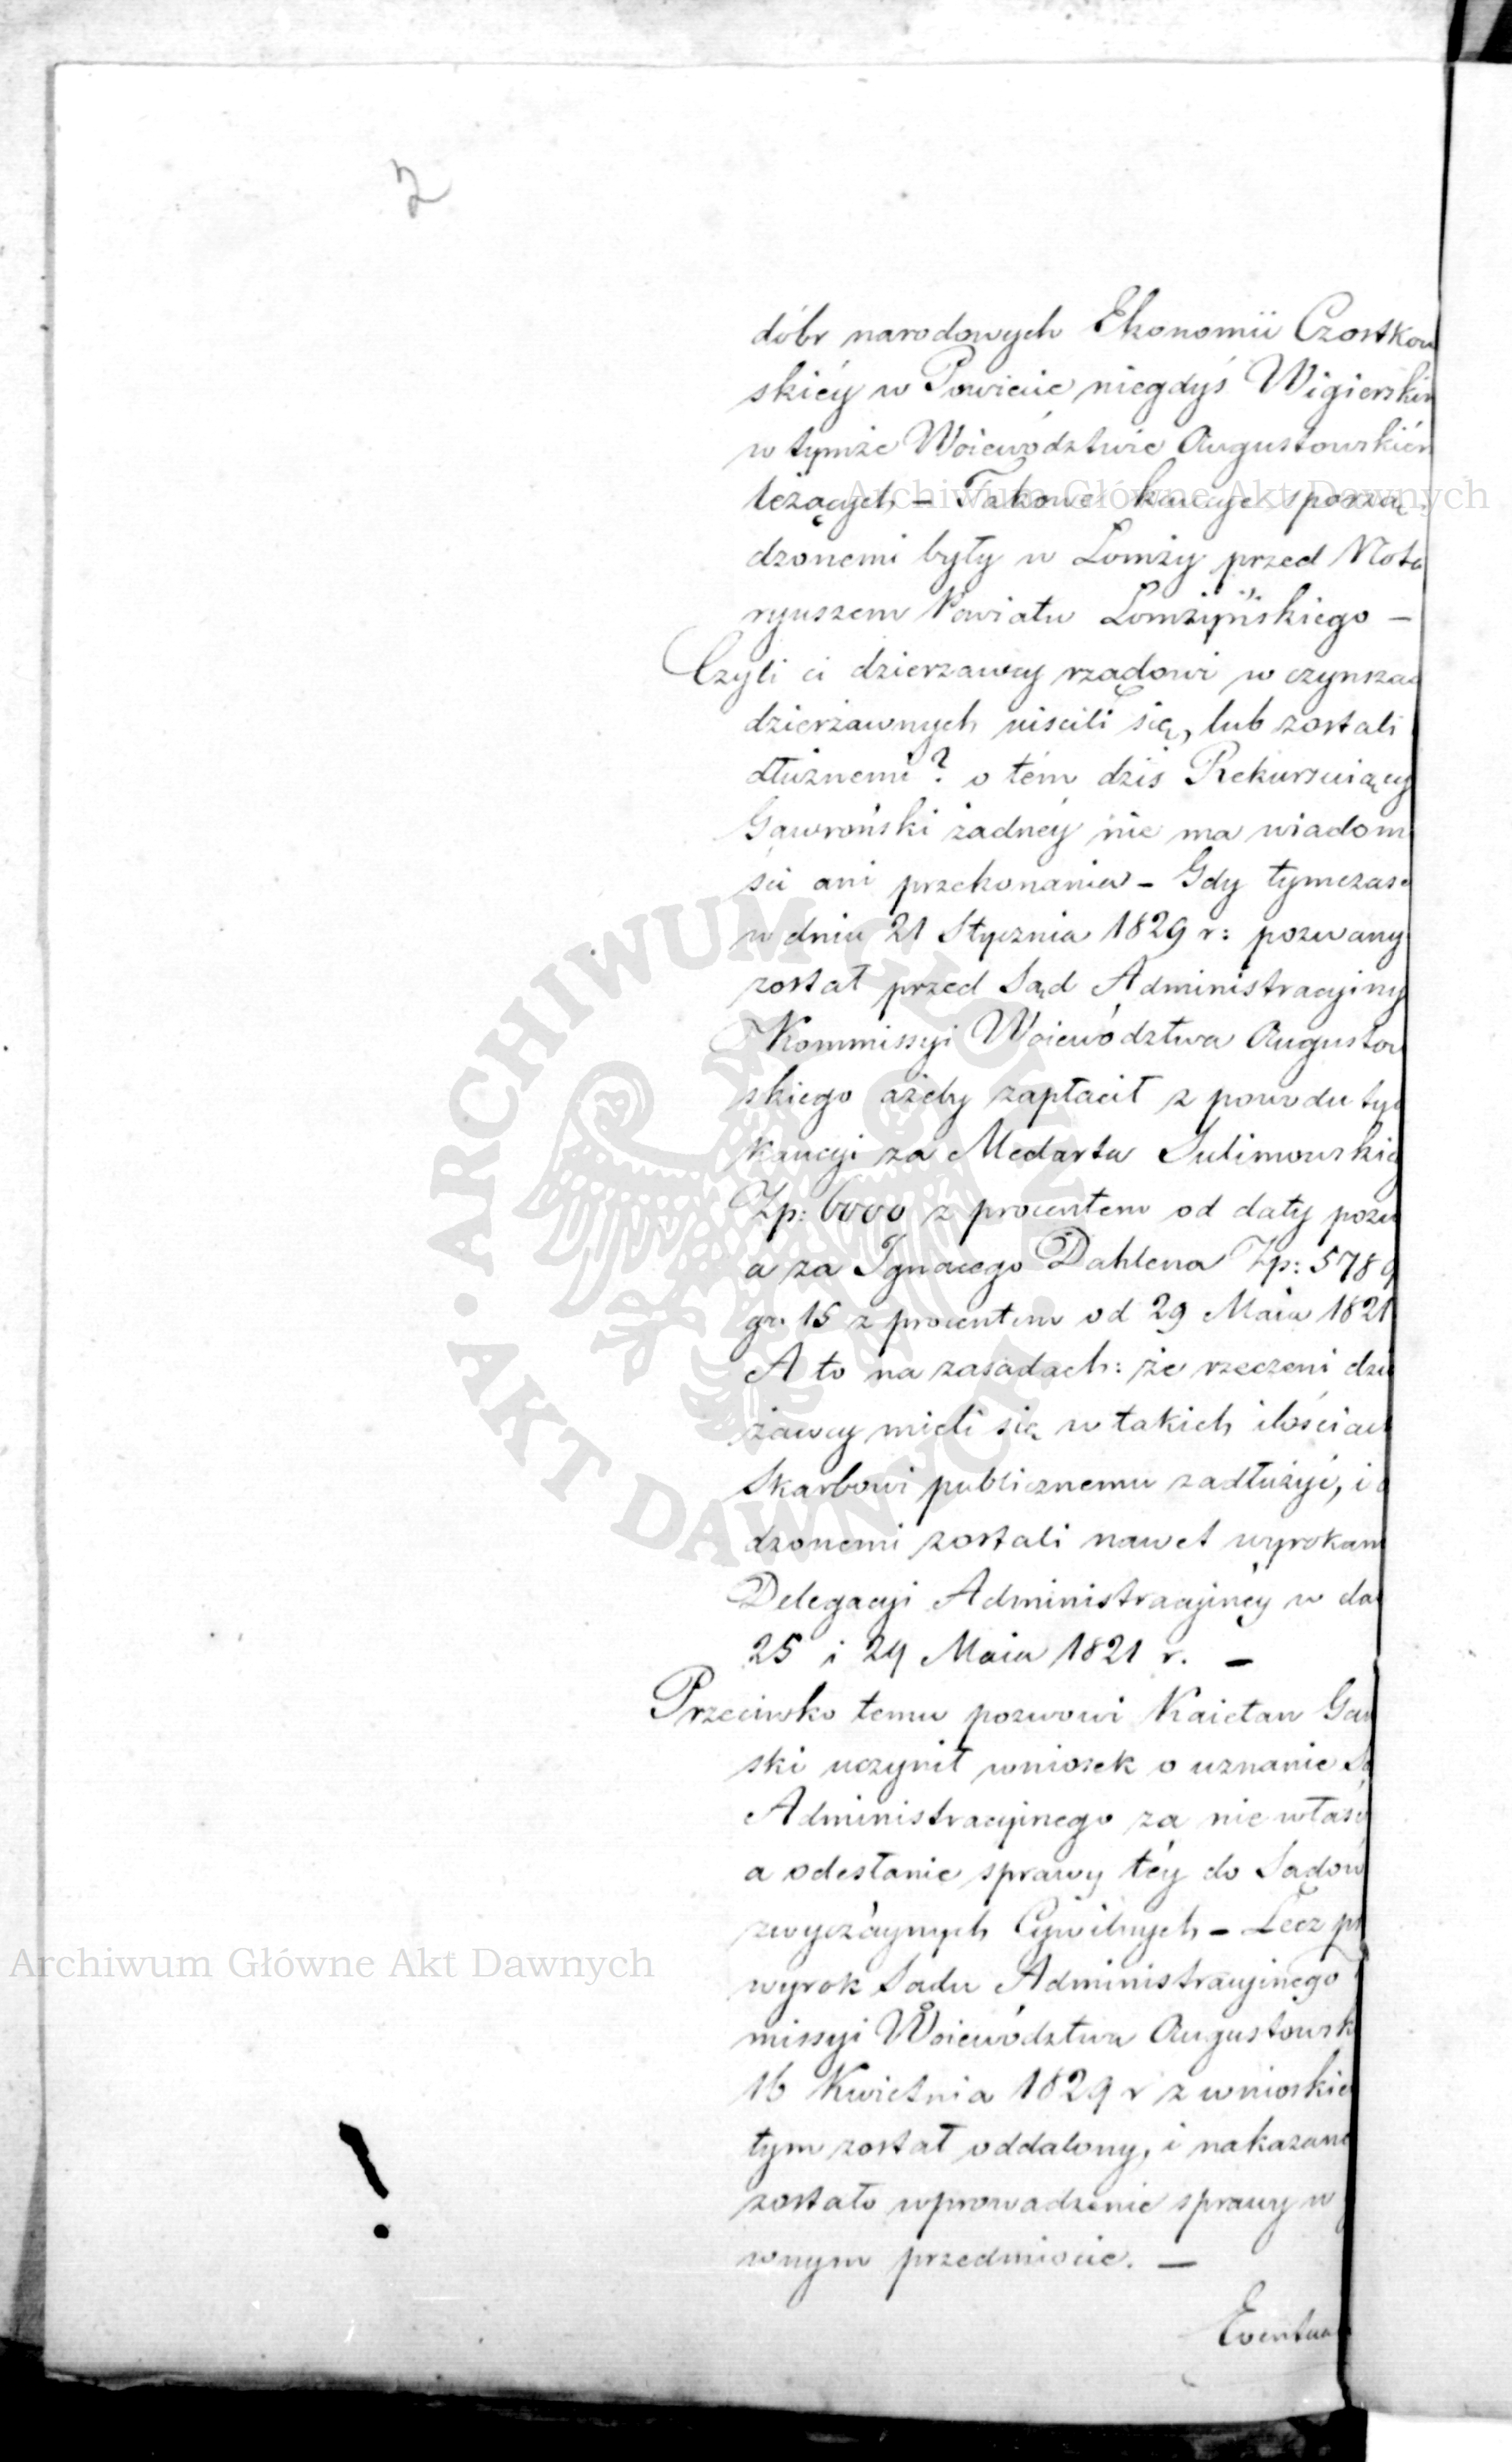 2
dóbr narodowych Ekonomii Czostkow
skiéy w Powiecie niegdyś Wigierskim
w tymże Woiewództwie Augustowskiém
leżących – Takowe kaucye sporzą
dzonemi były w Łomży przed Nota
ryuszem Powiatu Łomżyńskiego –
Czyli ci dzierzawcy rządowi w czynszac
dzierżawnych uiscili się, lub zostali
dłużnemi? o tém dziś Rekursuiący
Gawroński żadnéy nie ma wiadom
ści ani przekonania – Gdy tymczase
w dniu 21 Stycznia 1829 r: pozwany
został przed Sąd Administracyiny
Kommissyi Woiewództwa Augustow
skiego ażeby zapłacił z powodu tyc
kaucyi za Medarta Sulimowskieg
Zp: 6000 z procentem od daty pozw
a za Ignacego Dahlena Zp: 5789
gr. 15 z procentem od 29 Maia 1821
A to na zasadach: że rzeczeni dzie
żawcy mieli się w takich ilościach
Skarbowi publicznemu zadłużyć, i
dzonemi zostali nawet wyrokam
Delegacyi Administracyinéy w da
25 i 29 Maia 1821 r. –
Przeciwko temu pozwowi Kaietan Gaw
ski uczynił wniosek o uznanie Są
Administracyinego za nie właś
a odesłanie sprawy téy do Sądów
zwyczaynych Cywilnych – Lecz pr
wyrok Sądu Administracyinego
missyi Woiewództwa Augustowsk
16 Kwietnia 1829 r z wnioskie
tym został oddalony, i nakazane
zostało wprowadzenie sprawy w
wnym przedmiocie. –
Eventua
!
Archiwum Główne Akt Dawnych
Archiwum Główne Akt Dawnych
ARCHIWUM GŁÓWNE AKT DAWNYCH